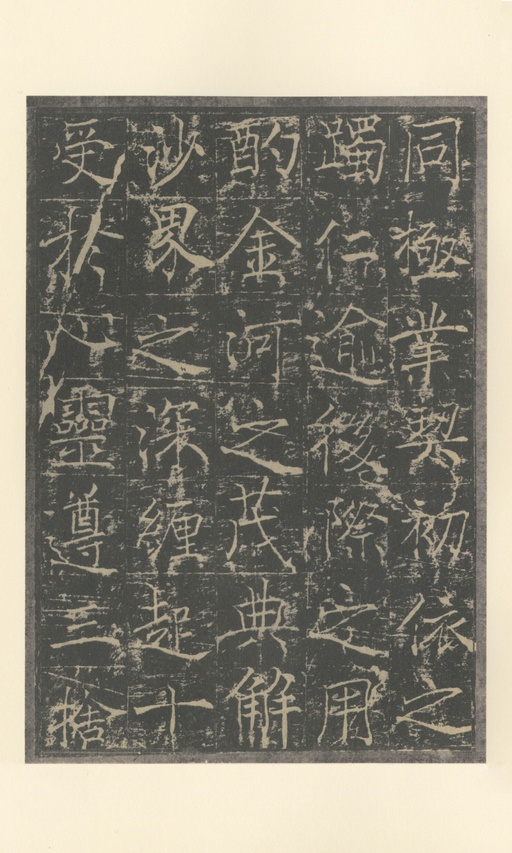 同極業契初依之
躅仁逾後際之用
酌金河之茂典解
沙界之深纏超十
受於心靈遵三捨